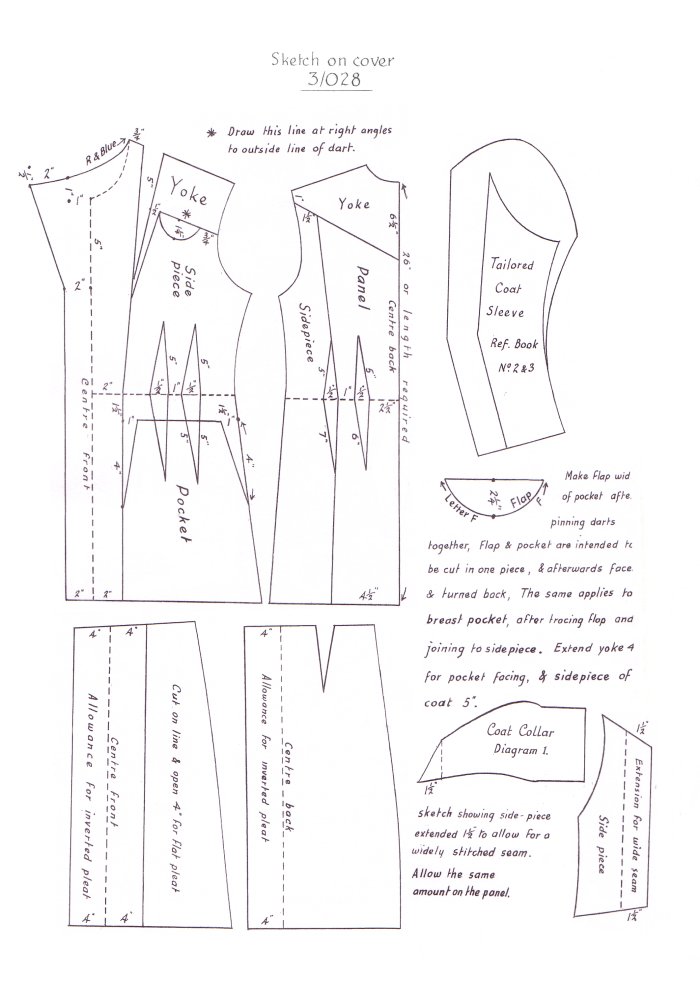 Sketch on cover
3/028
* Draw this line at right angles
to outside line of dart.
R & Blue
3/4"
2"
1"
1"
5"
2"
Centre front
2"
2"
2"
5"
Yoke
*
1 3/4"
3/4"
Side
piece
5"
5"
1/2"
1"
1/2"
5"
5"
1 1/2"
1"
4"
1 1/2"
1"
4"
Pocket
1"
1 1/2"
Yoke
6 1/2"
26" or length required
Centre back
Panel
Sidepiece
5"
5"
1/2"
1"
1/2"
2 1/2"
7"
6"
4 1/2"
Tailored
Coat
Sleeve
Ref. Book
Nº. 2 & 3
Letter F
2 1/4"
Flap
F
Make flap wid
of pocket afte
pinning darts
together, Flap & pocket are intended to
be cut in one piece, & afterwards face
& turned back, The same applies to
breast pocket, after tracing flap and
joining to sidepiece. Extend yoke 4
for pocket facing, & sidepiece of
coat 5".
4"
4"
Allowance for inverted pleat
Centre front
Cut on line & open 4" for flat pleat
4"
4"
4"
Allowance for inverted pleat
Centre back
4"
Coat Collar
Diagram 1.
1 1/2"
sketch showing side-piece
extended 1 1/2" to allow for a
widely stitched seam.
Allow the same
amount on the panel.
1 1/2"
Extension for wide seam
Side piece
1 1/2"